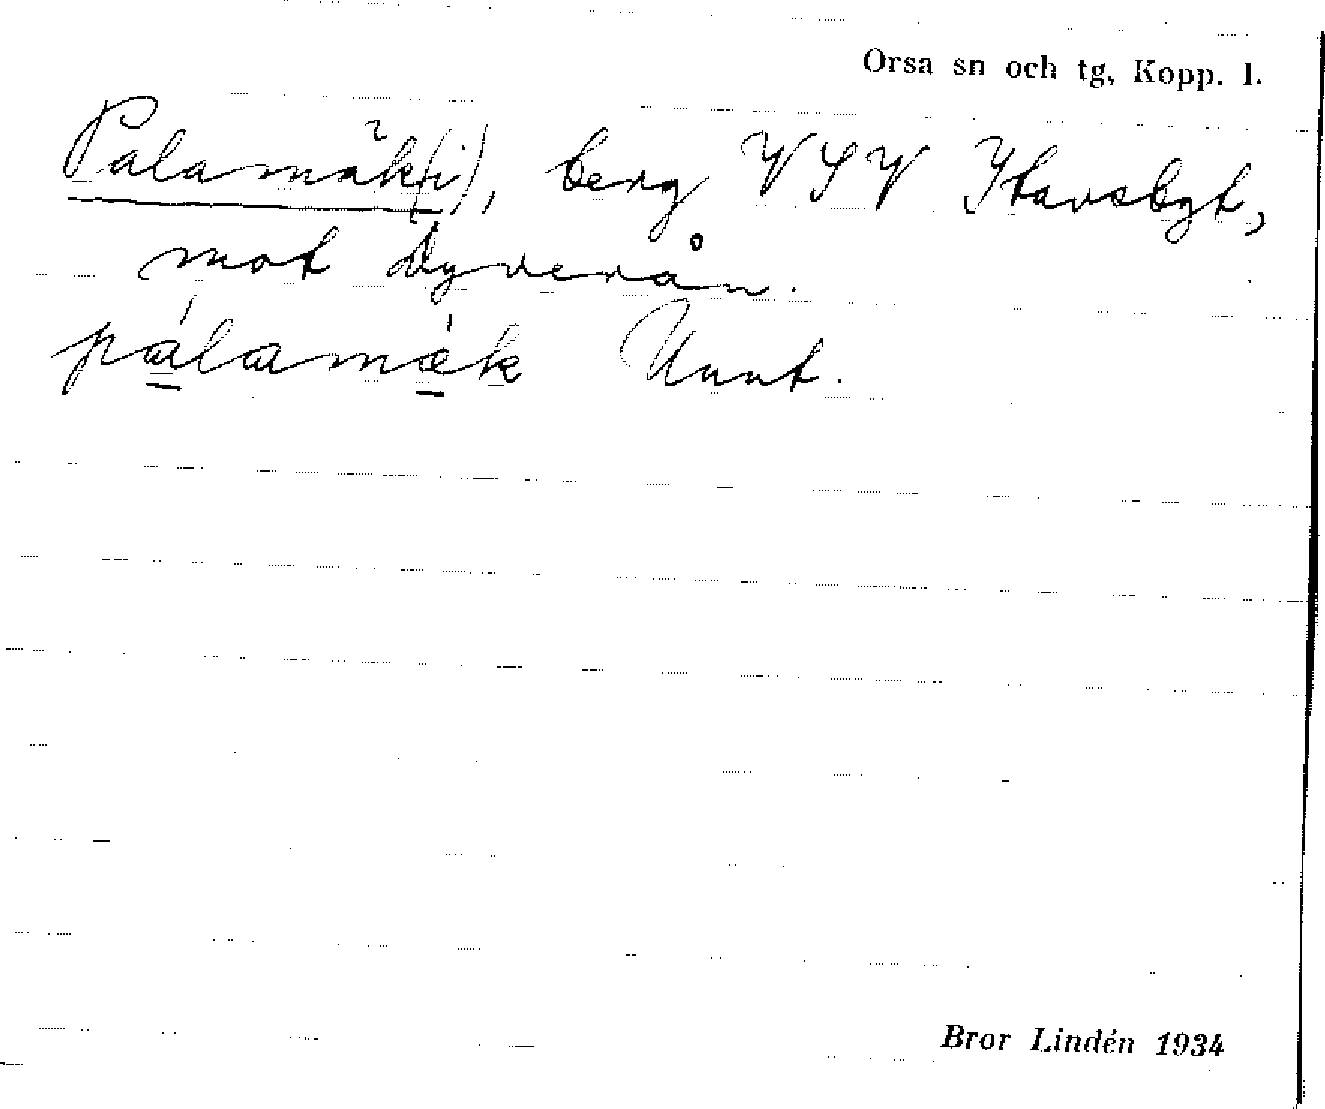 Orsa sn och tg, Kopp. l.
Palamäk(i), berg VSV Stavsbgt,
mot Dyverån.
pálamák Uunt.
Bror Lindén 1934